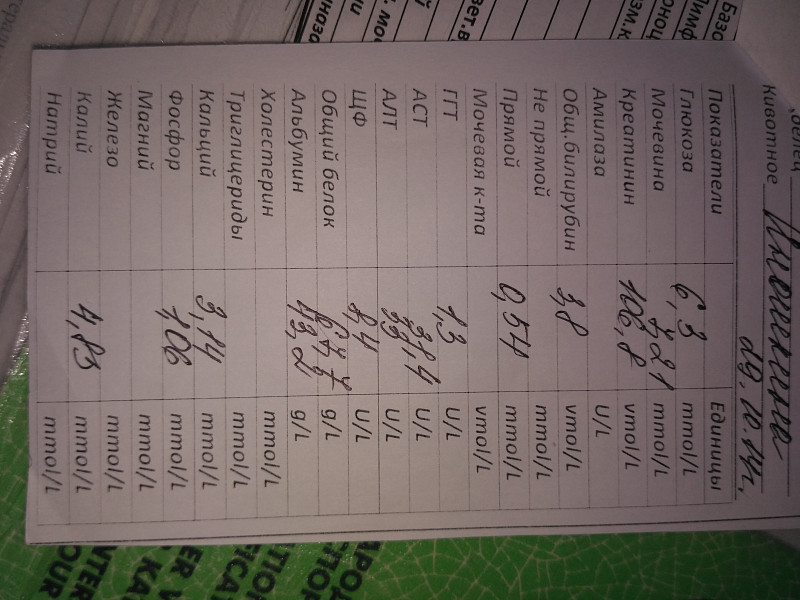 Животное
Показатели Единицы
Глюкоза 6,3 mmol/L
Мочевина 7,21 mmol/L
Креатинин 106,8 vmol/L
Амилаза U/L
Общ.билирубин 3,8 vmol/L
Не прямой mmol/L
Прямой 0,54 mmol/L
Мочевая к-та vmol/L
ГГТ 1,3 U/L
АСТ U/L
АЛТ U/L
ЩФ U/L
Общий белок 67,7 g/L
Альбумин 43,2 g/L
Холестерин mmol/L
Триглицериды mmol/L
Кальций 3,14 mmol/L
Фосфор 1,06 mmol/L
Магний mmol/L
Железо mmol/L
Калий 4,83 mmol/L
Натрий mmol/L